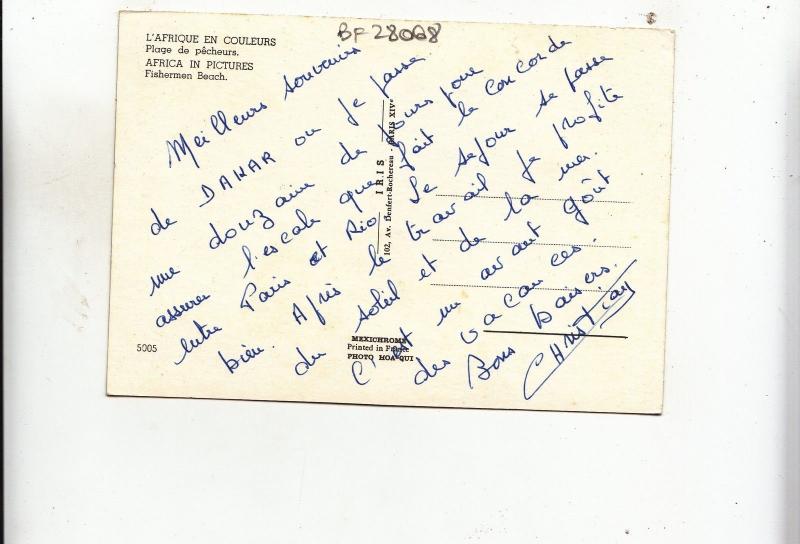 BF 28068
L'AFRIQUE EN COULEURS
Plage de pêcheurs.
AFRICA IN PICTURES
Fishermen Beach.
Meilleurs souvenirs
de DAKAR ou je passe
une douzaine de jours pour
assurer l'escale que fait le concorde
entre Paris et Rio. Le sejour se passe
bien. Après le travail je profite
du soleil et de la mer.
C'est un avant goût
des vacances.
Bons baisers.
CHRISTIAN
IRIS
102, Av. Denfert-Rochereau - PARIS XIVe
5005
MEXICHROME
Printed in France
PHOTO HOA-QUI